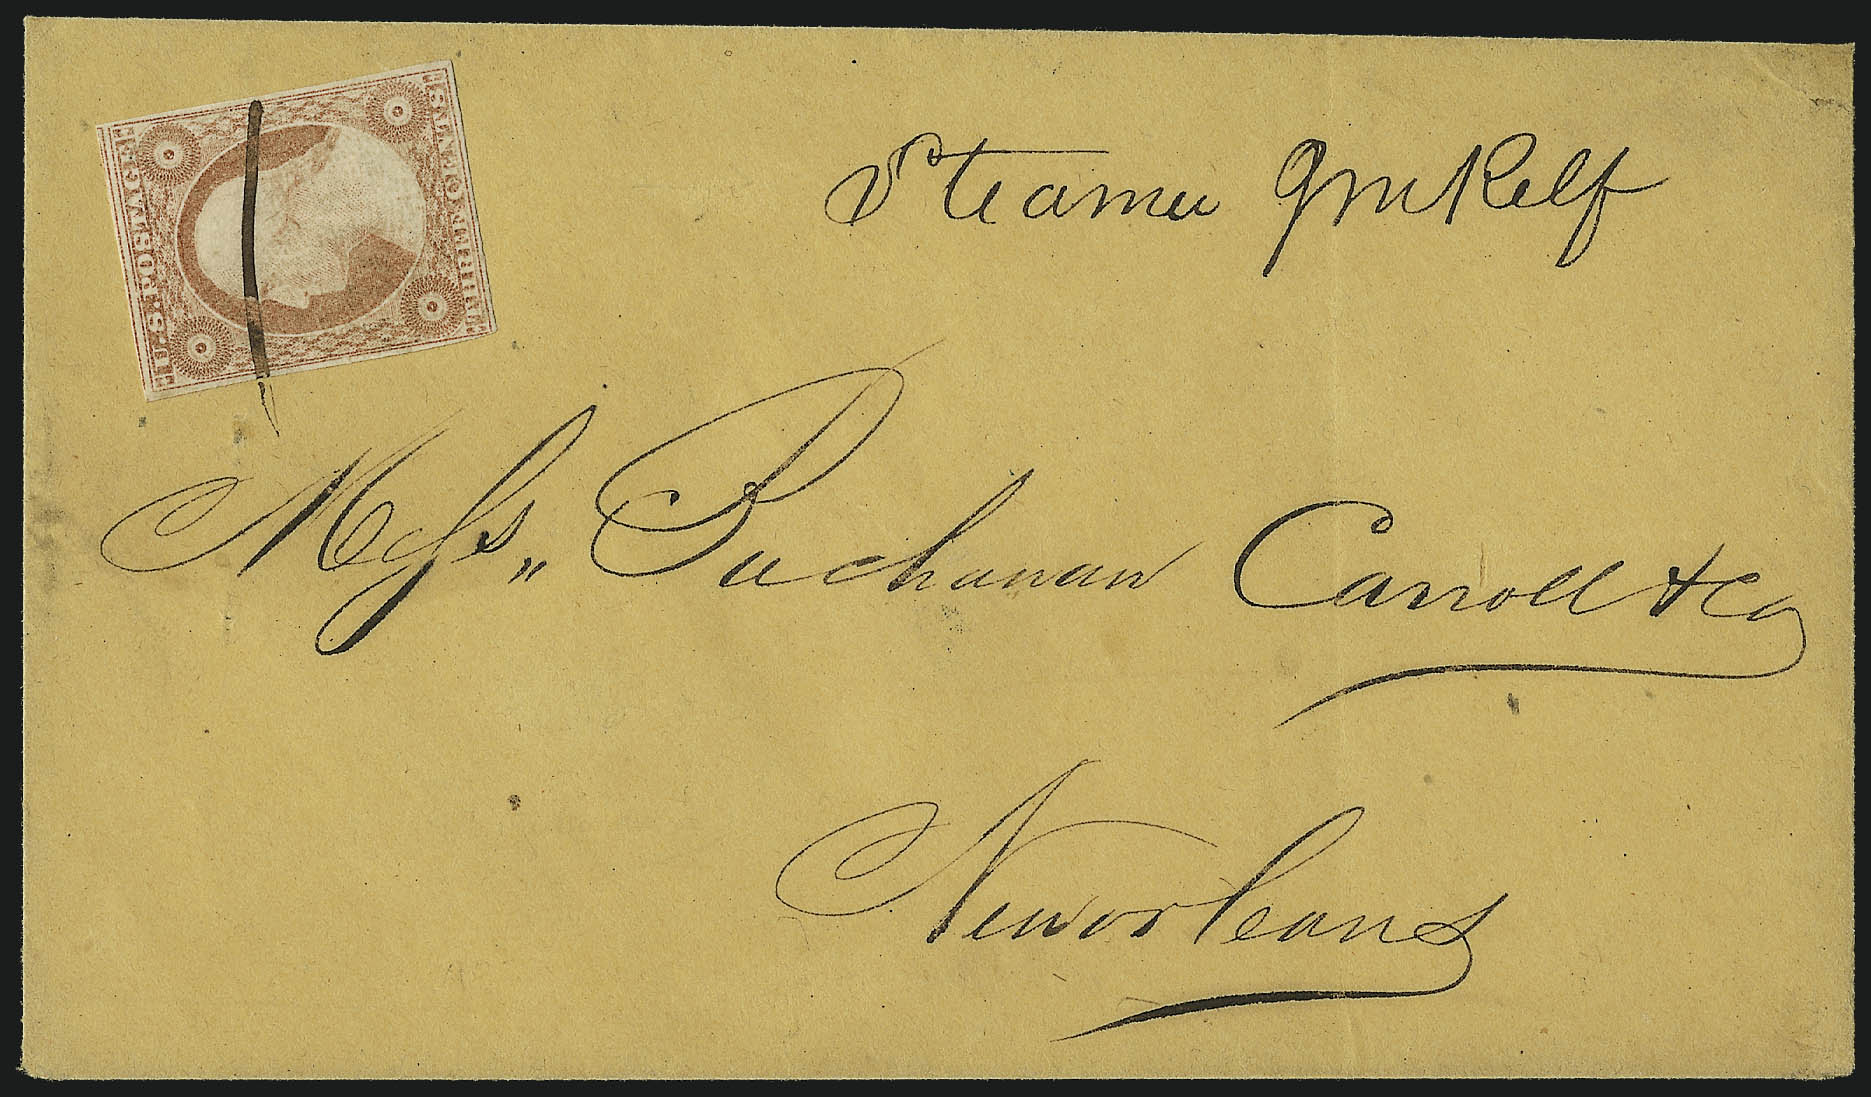 U.S. POSTAGE
THREE CENTS
Steamer Jno M Relf
Messrs,, Buchanan Carroll & Co
New orleans